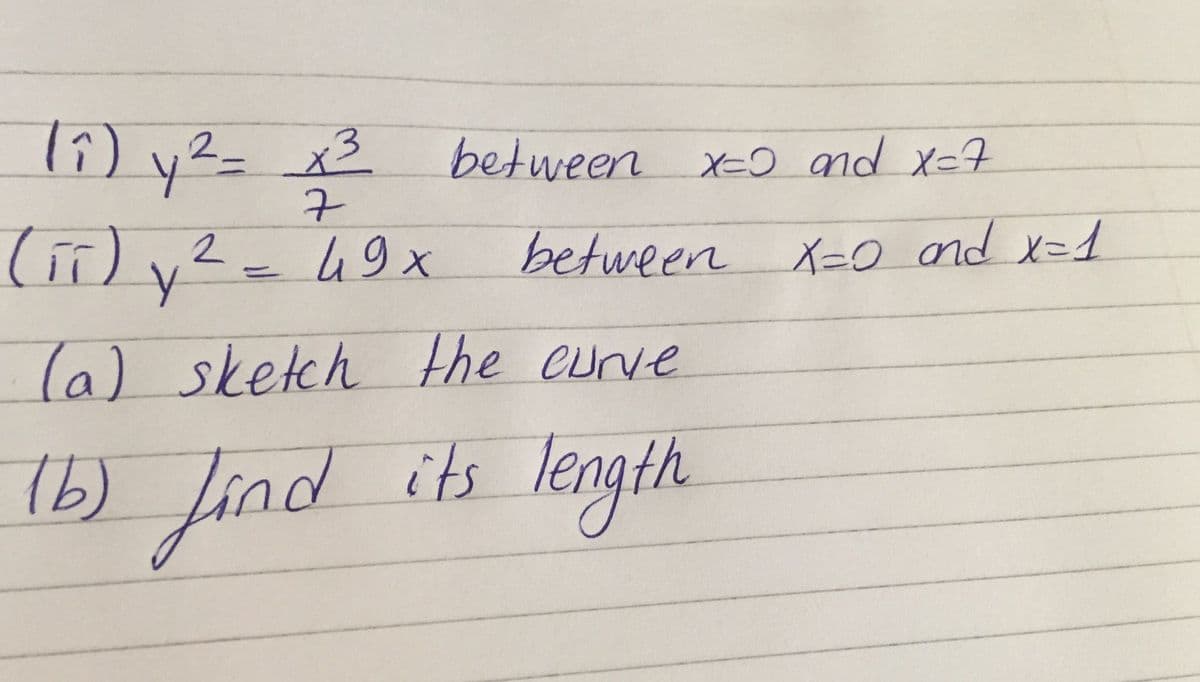 (i) y² = x³/7 between x=0 and x=7
(ii) y² = 49x between x=0 and x=1
(a) sketch the curve
(b) find its length